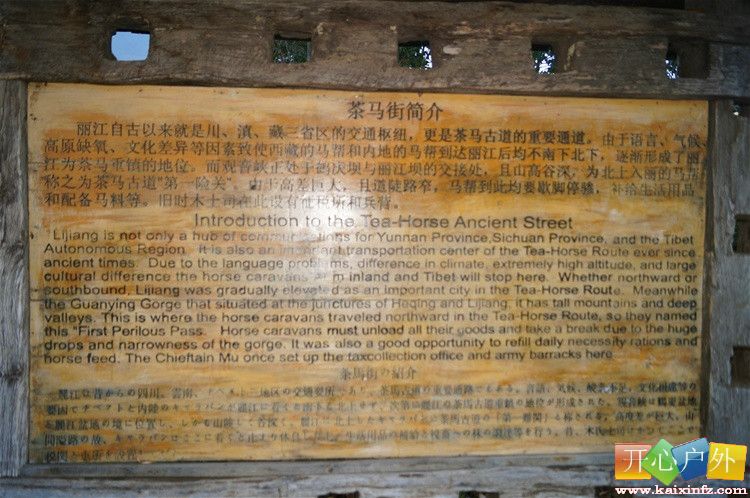 茶马街简介
丽江自古以来就是川、滇、藏三省区的交通枢纽，更是茶马古道的重要通道。由于语言、气候、
高原缺氧、文化差异等因素致使西藏的马帮和内地的马帮到达丽江后均不南下北上，逐渐形成了丽
江为茶马重镇的地位。而观音峡正处于鹤庆坝与丽江坝的交接处，且山高谷深，为北上入丽的马帮
称之为茶马古道“第一险关”。由于高差巨大，且道陡路窄，马帮到此均要歇脚停骖，补给生活用品
和配备马料等。旧时木土司在此设有税所和兵营。
Introduction to the Tea-Horse Ancient Street
Lijiang is not only a hub of communications for Yunnan Province,Sichuan Province, and the Tibet
Autonomous Region. It is also an important transportation center of the Tea-Horse Route ever since
ancient times. Due to the language problems, difference in climate, extremely high altitude, and large
cultural difference the horse caravans from inland and Tibet will stop here. Whether northward or
southbound, Lijiang was gradually elevated as an important city in the Tea-Horse Route. Meanwhile
the Guanying Gorge that situated at the junctures of Heqing and Lijiang, it has tall mountains and deep
valleys. This is where the horse caravans traveled northward in the Tea-Horse Route, so they named
this "First Perilous Pass. Horse caravans must unload all their goods and take a break due to the huge
drops and narrowness of the gorge. It was also a good opportunity to refill daily necessity rations and
horse feed. The Chieftain Mu once set up the taxcollection office and army barracks here
茶馬街の紹介
麗江は昔からの四川、雲南、チベット三地区の交通要所であり、茶馬古道の重要通路でもある。言語、気候、酸素不足、文化相違等の
开心户外
www.kaixinfz.com